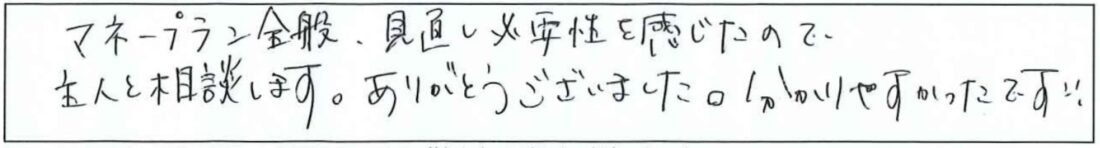 マネープラン全般、見直し必要性を感じたので、
主人と相談します。ありがとうございました。分かりやすかったです!!